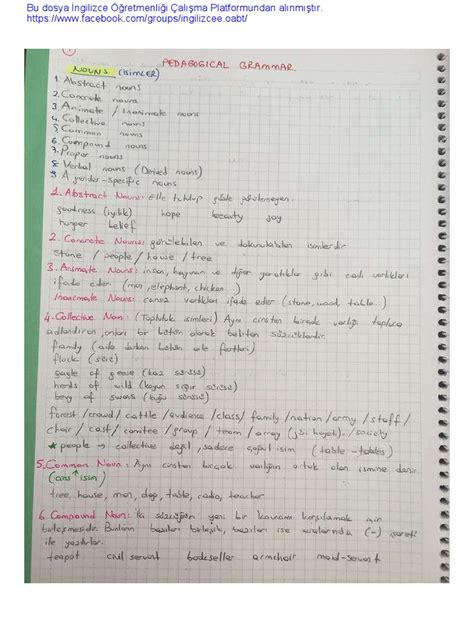 Bu dosya İngilizce Öğretmenliği Çalışma Platformundan alınmıştır.
https://www.facebook.com/groups/ingilizcee.oabt/
PEDAGOGICAL GRAMMAR
NOUNS (isimler)
1. Abstract nouns
2. Concrete nouns
3. Animate / Inanimate nouns
4. Collective nouns
5. Common nouns
6. Compound nouns
7. Proper nouns
8. Verbal nouns (Derived nouns)
9. A gender-specific nouns
1. Abstract Nouns: Elle tutulup gözle görülemeyen.
goodness (iyilik) hope beauty joy
hunger belief
2. Concrete Nouns: görülebilen ve dokunulabilen isimlerdir
stone / people / house / tree
3. Animate Nouns: insan, hayvan ve diğer yaratıklar gibi canlı varlıkları
ifade eder (man, elephant, chicken)
Inanimate Nouns: cansız varlıkları ifade eder (stone, wood, table.)
4. Collective Noun: (Topluluk isimleri) Aynı cinsten birçok varlığı topluca
adlandıran, onları bir bütün olarak belirten sözcüklerdir.
family (aile birken bütün aile fertleri)
flock (sürü)
gagle of geese (kaz sürüsü)
herds of wild (koyun sığır sürüsü)
bevy of swans (kuğu sürüsü)
forest / crowd / cattle / audience / class / family / nation / army / staff /
choir / cast / comitee / group / team / array (jüri heyeti). / society
* people → collective değil, sadece çoğul isim (table - tables)
5. Common Noun: Aynı cinsten birçok varlığın ortak olan ismine denir.
(cins isim)
tree, house, man, dog, table, radio, teacher
6. Compound Noun: İki sözcüğün yeni bir kavramı karşılamak için
birleşmesidir. Bunların bazıları birleşik, bazıları ise aralarında (-) işareti
ile yazılırlar.
teapot civil servant bookseller armchair maid-servant